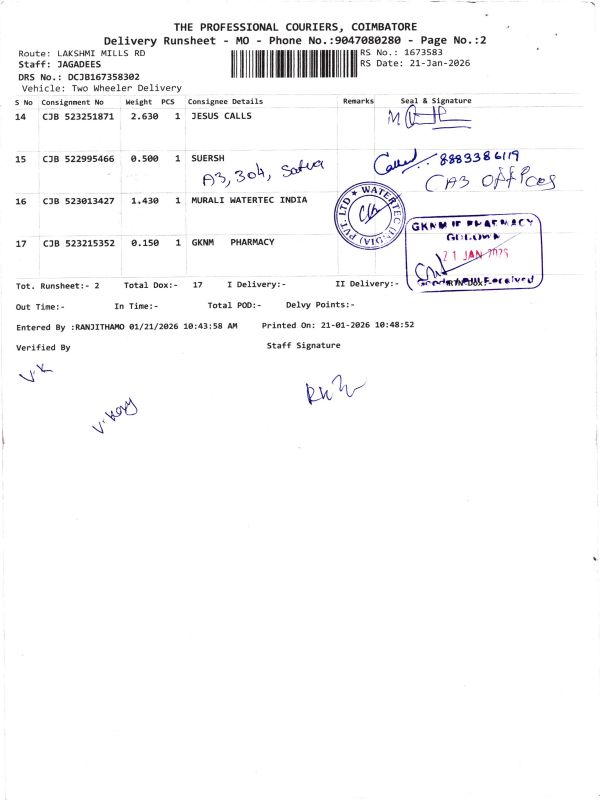 THE PROFESSIONAL COURIERS, COIMBATORE
Delivery Runsheet - MO - Phone No.:9047080280 - Page No.:2
Route: LAKSHMI MILLS RD
RS No.: 1673583
Staff: JAGADEES
RS Date: 21-Jan-2026
DRS No.: DCJB167358302
Vehicle: Two Wheeler Delivery
S No Consignment No Weight PCS Consignee Details Remarks Seal & Signature
14 CJB 523251871 2.630 1 JESUS CALLS
15 CJB 522995466 0.500 1 SUERSH
Called 8883386119
A3, 304,
CAB Offices
16 CJB 523013427 1.430 1 MURALI WATERTEC INDIA
WATERTEC (INDIA) PVT. LTD
17 CJB 523215352 0.150 1 GKNM PHARMACY
GKNM IP PHARMACY
GODOWN
21 JAN 2026
Received
Tot. Runsheet:- 2 Total Dox:- 17 I Delivery:- II Delivery:- RTN Dox:-
Out Time:- In Time:- Total POD:- Delvy Points:-
Entered By :RANJITHAMO 01/21/2026 10:43:58 AM Printed On: 21-01-2026 10:48:52
Verified By Staff Signature
V.K